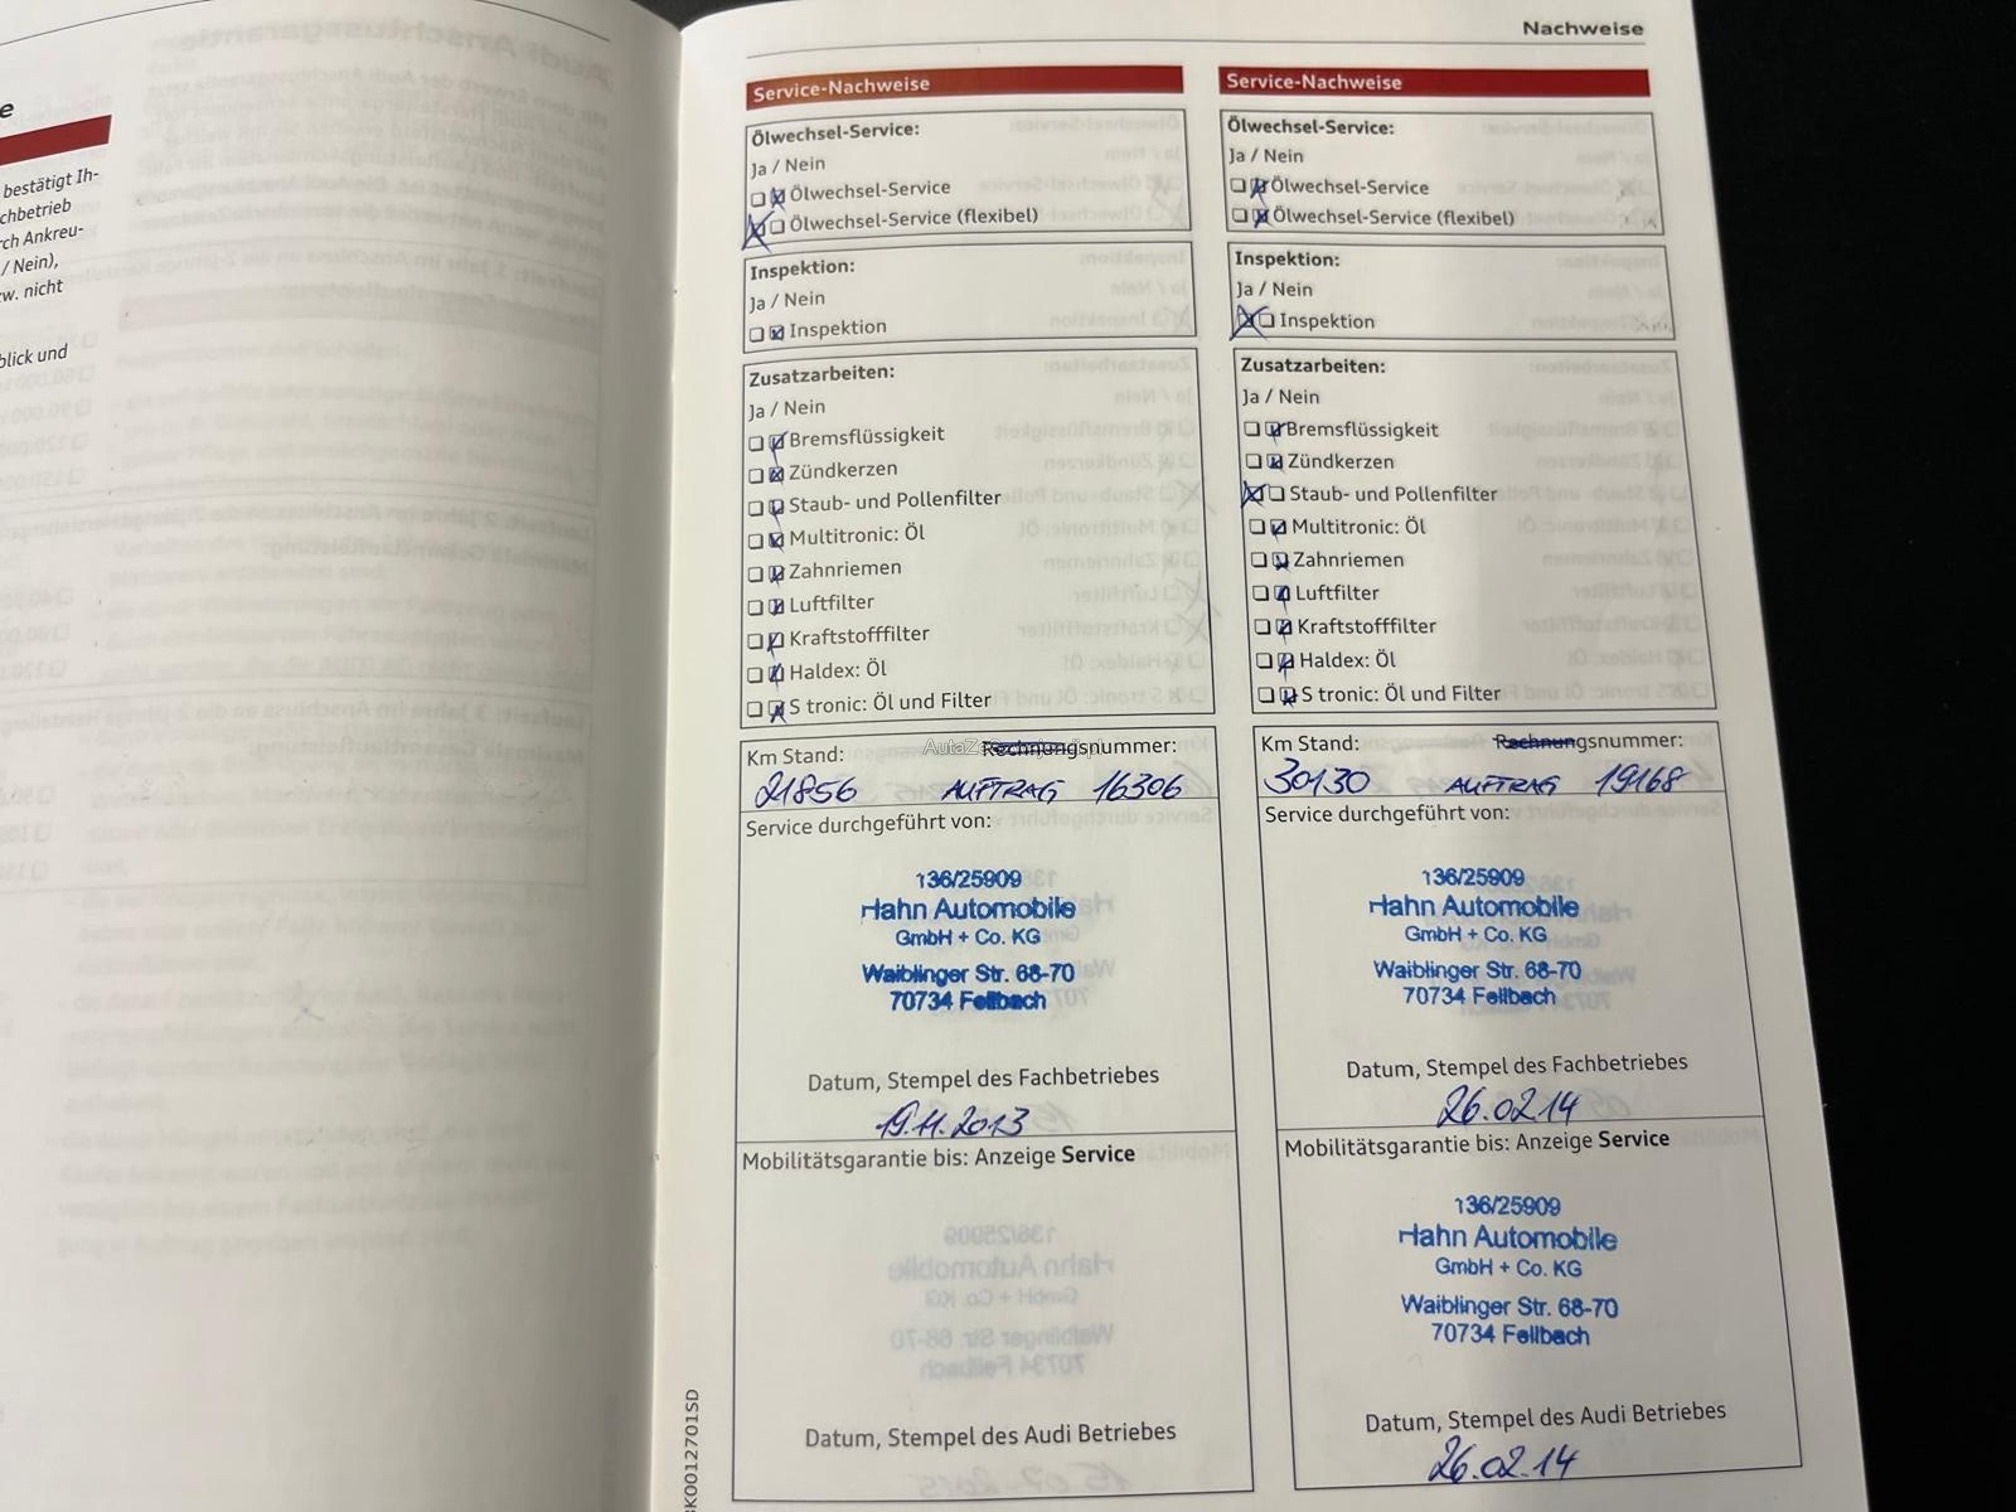 e
bestätigt Ih-
chbetrieb
rch Ankreu-
/ Nein),
w. nicht
blick und
Nachweise
Service-Nachweise
Ölwechsel-Service:
Ja / Nein
Ölwechsel-Service
Ölwechsel-Service (flexibel)
Inspektion:
Ja / Nein
Inspektion
Zusatzarbeiten:
Ja / Nein
Bremsflüssigkeit
Zündkerzen
Staub- und Pollenfilter
Multitronic: Öl
Zahnriemen
Luftfilter
Kraftstofffilter
Haldex: Öl
S tronic: Öl und Filter
Km Stand: Rechnungsnummer:
21856 AUFTRAG 16306
Service durchgeführt von:
136/25909
Hahn Automobile
GmbH + Co. KG
Waiblinger Str. 68-70
70734 Fellbach
Datum, Stempel des Fachbetriebes
19.11.2013
Mobilitätsgarantie bis: Anzeige Service
Datum, Stempel des Audi Betriebes
Service-Nachweise
Ölwechsel-Service:
Ja / Nein
Ölwechsel-Service
Ölwechsel-Service (flexibel)
Inspektion:
Ja / Nein
Inspektion
Zusatzarbeiten:
Ja / Nein
Bremsflüssigkeit
Zündkerzen
Staub- und Pollenfilter
Multitronic: Öl
Zahnriemen
Luftfilter
Kraftstofffilter
Haldex: Öl
S tronic: Öl und Filter
Km Stand: Rechnungsnummer:
30130 AUFTRAG 19168
Service durchgeführt von:
136/25909
Hahn Automobile
GmbH + Co. KG
Waiblinger Str. 68-70
70734 Fellbach
Datum, Stempel des Fachbetriebes
26.02.14
Mobilitätsgarantie bis: Anzeige Service
136/25909
Hahn Automobile
GmbH + Co. KG
Waiblinger Str. 68-70
70734 Fellbach
Datum, Stempel des Audi Betriebes
26.02.14
K0012701SD